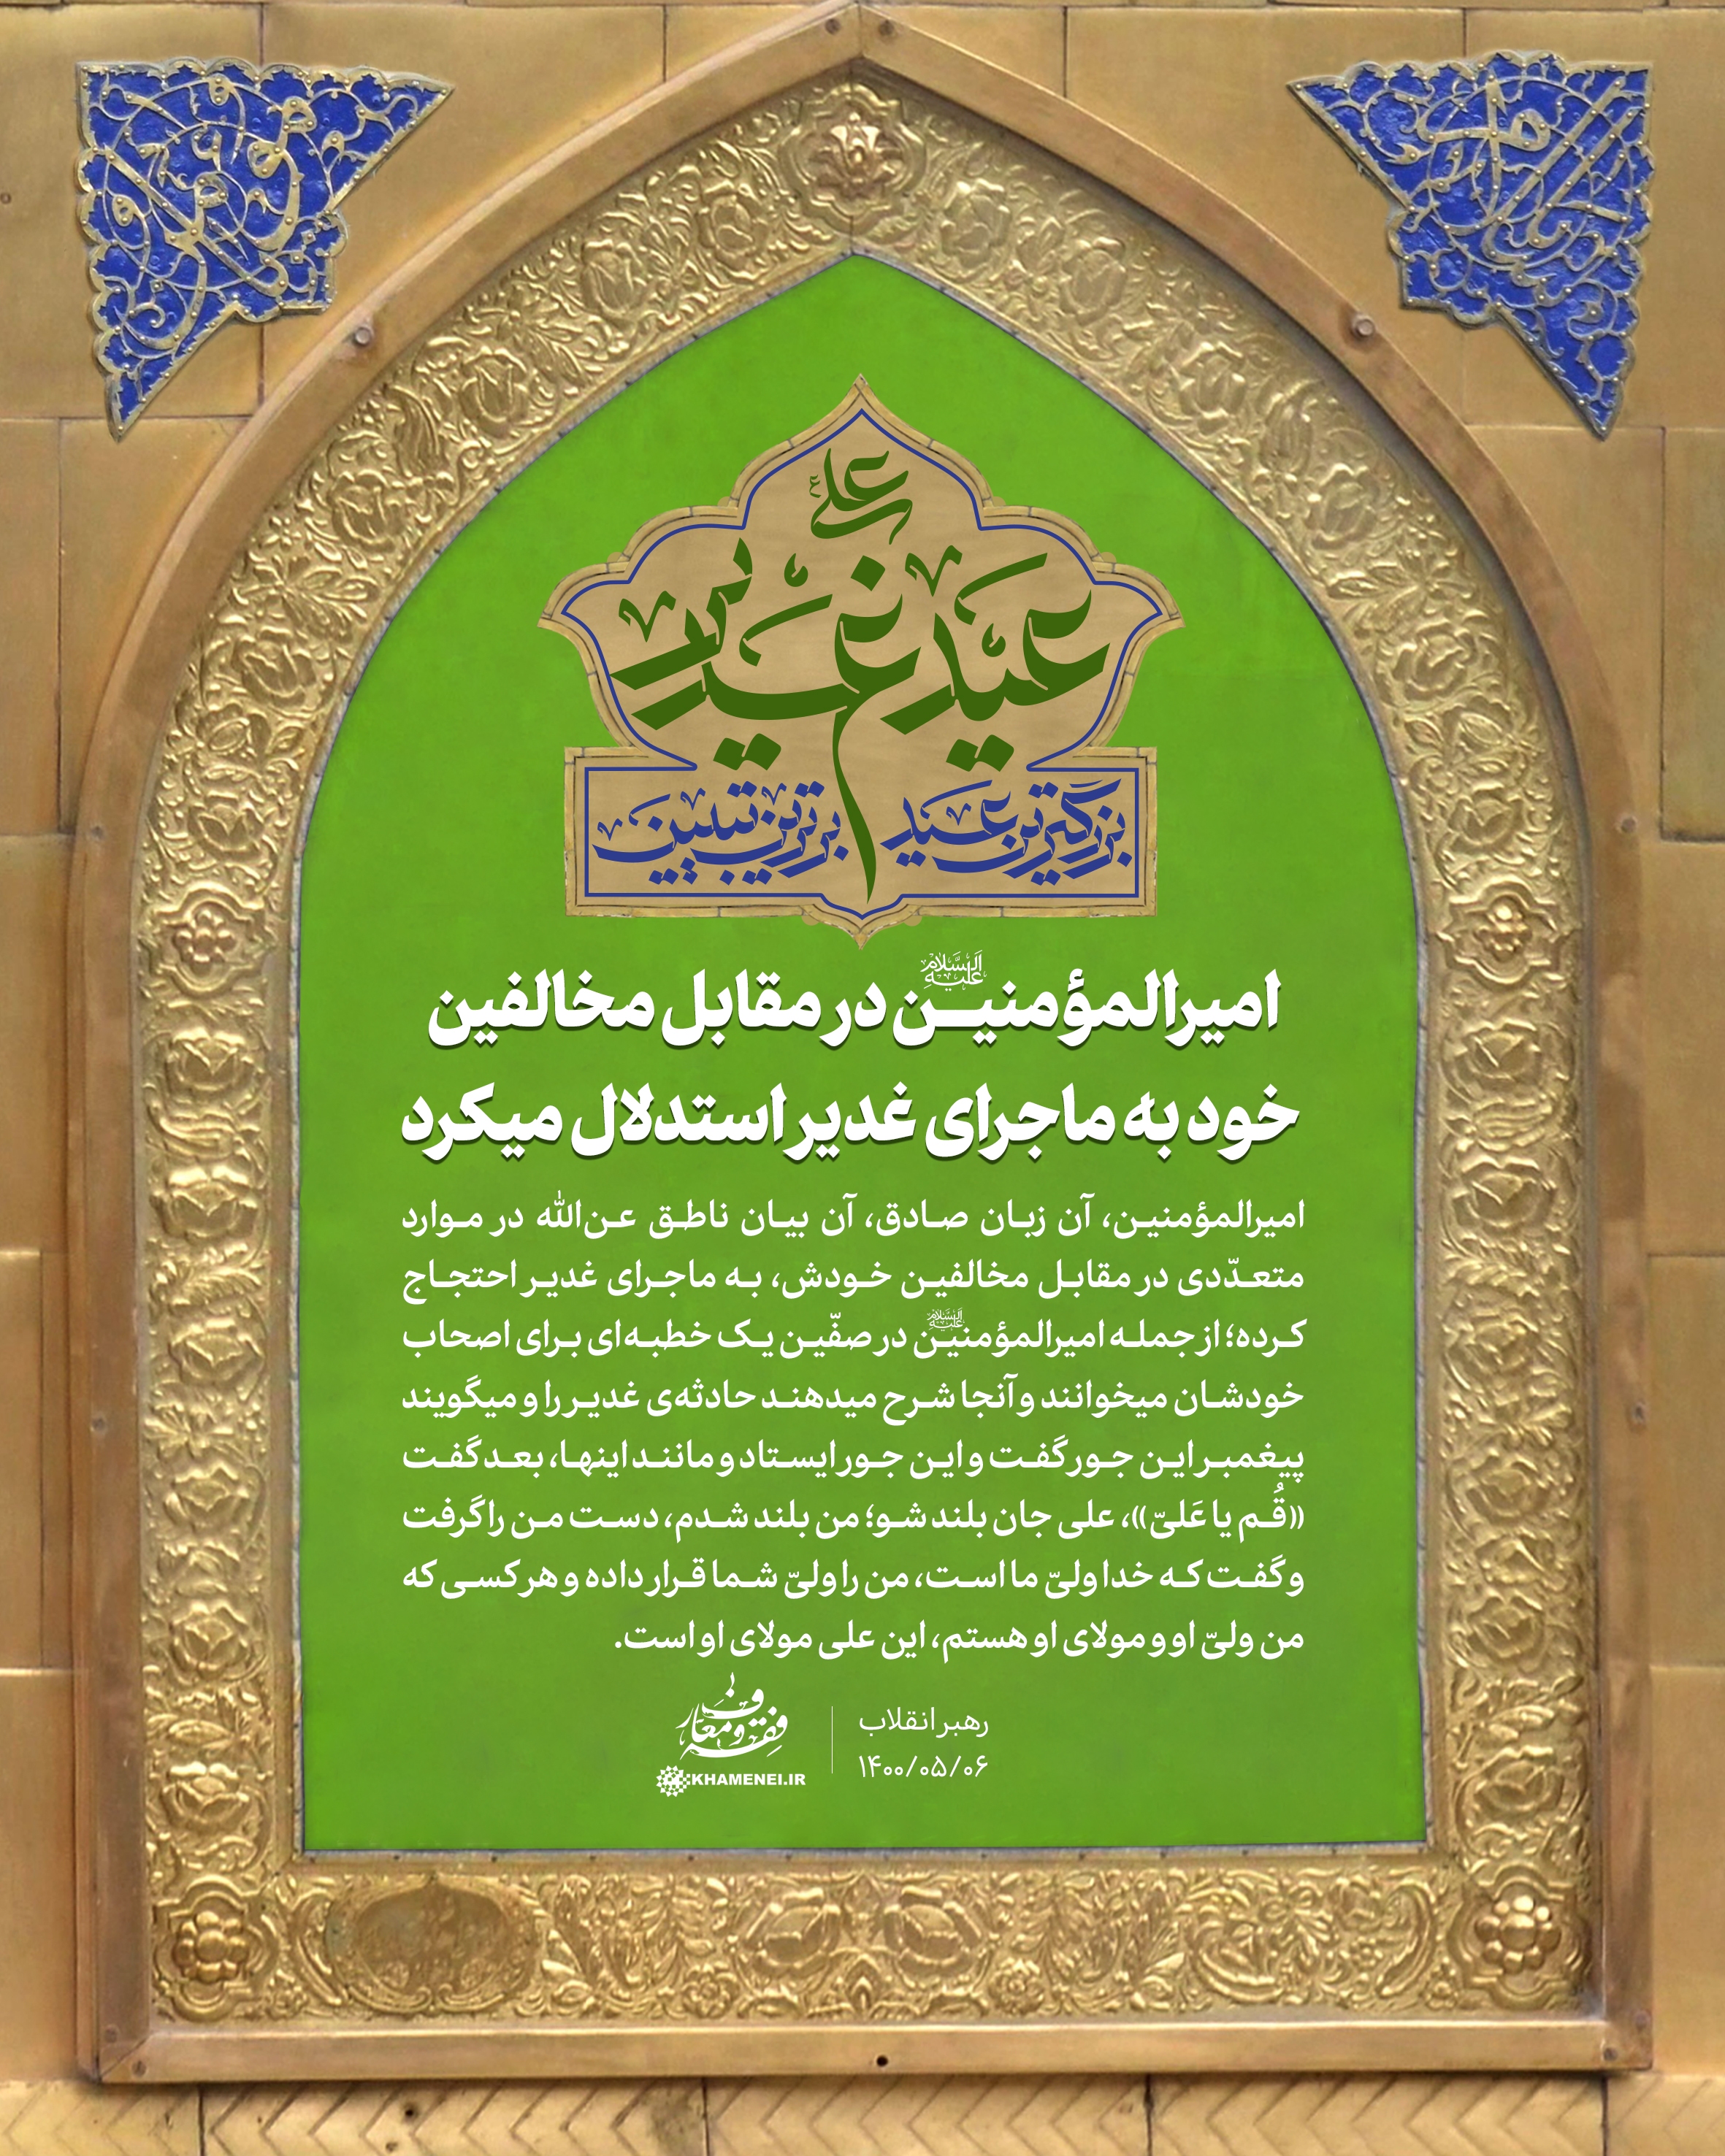 علی
عید غدیر
بزرگترین عید
برترین تبیین
امیرالمؤمنین علیه السلام در مقابل مخالفین
خود به ماجرای غدیر استدلال میکرد
امیرالمؤمنین، آن زبان صادق، آن بیان ناطق عن‌الله در موارد
متعدّدی در مقابل مخالفین خودش، به ماجرای غدیر احتجاج
کرده؛ از جمله امیرالمؤمنین علیه السلام در صفّین یک خطبه‌ای برای اصحاب
خودشان میخوانند و آنجا شرح میدهند حادثه‌ی غدیر را و میگویند
پیغمبر این جور گفت و این جور ایستاد و مانند اینها، بعد گفت
«قُم یا عَلیّ»، علی جان بلند شو؛ من بلند شدم، دست من را گرفت
و گفت که خدا ولیّ ما است، من را ولیّ شما قرار داده و هر کسی که
من ولیّ او و مولای او هستم، این علی مولای او است.
رهبر انقلاب
۱۴۰۰/۰۵/۰۶
فقه و معارف
KHAMENEI.IR